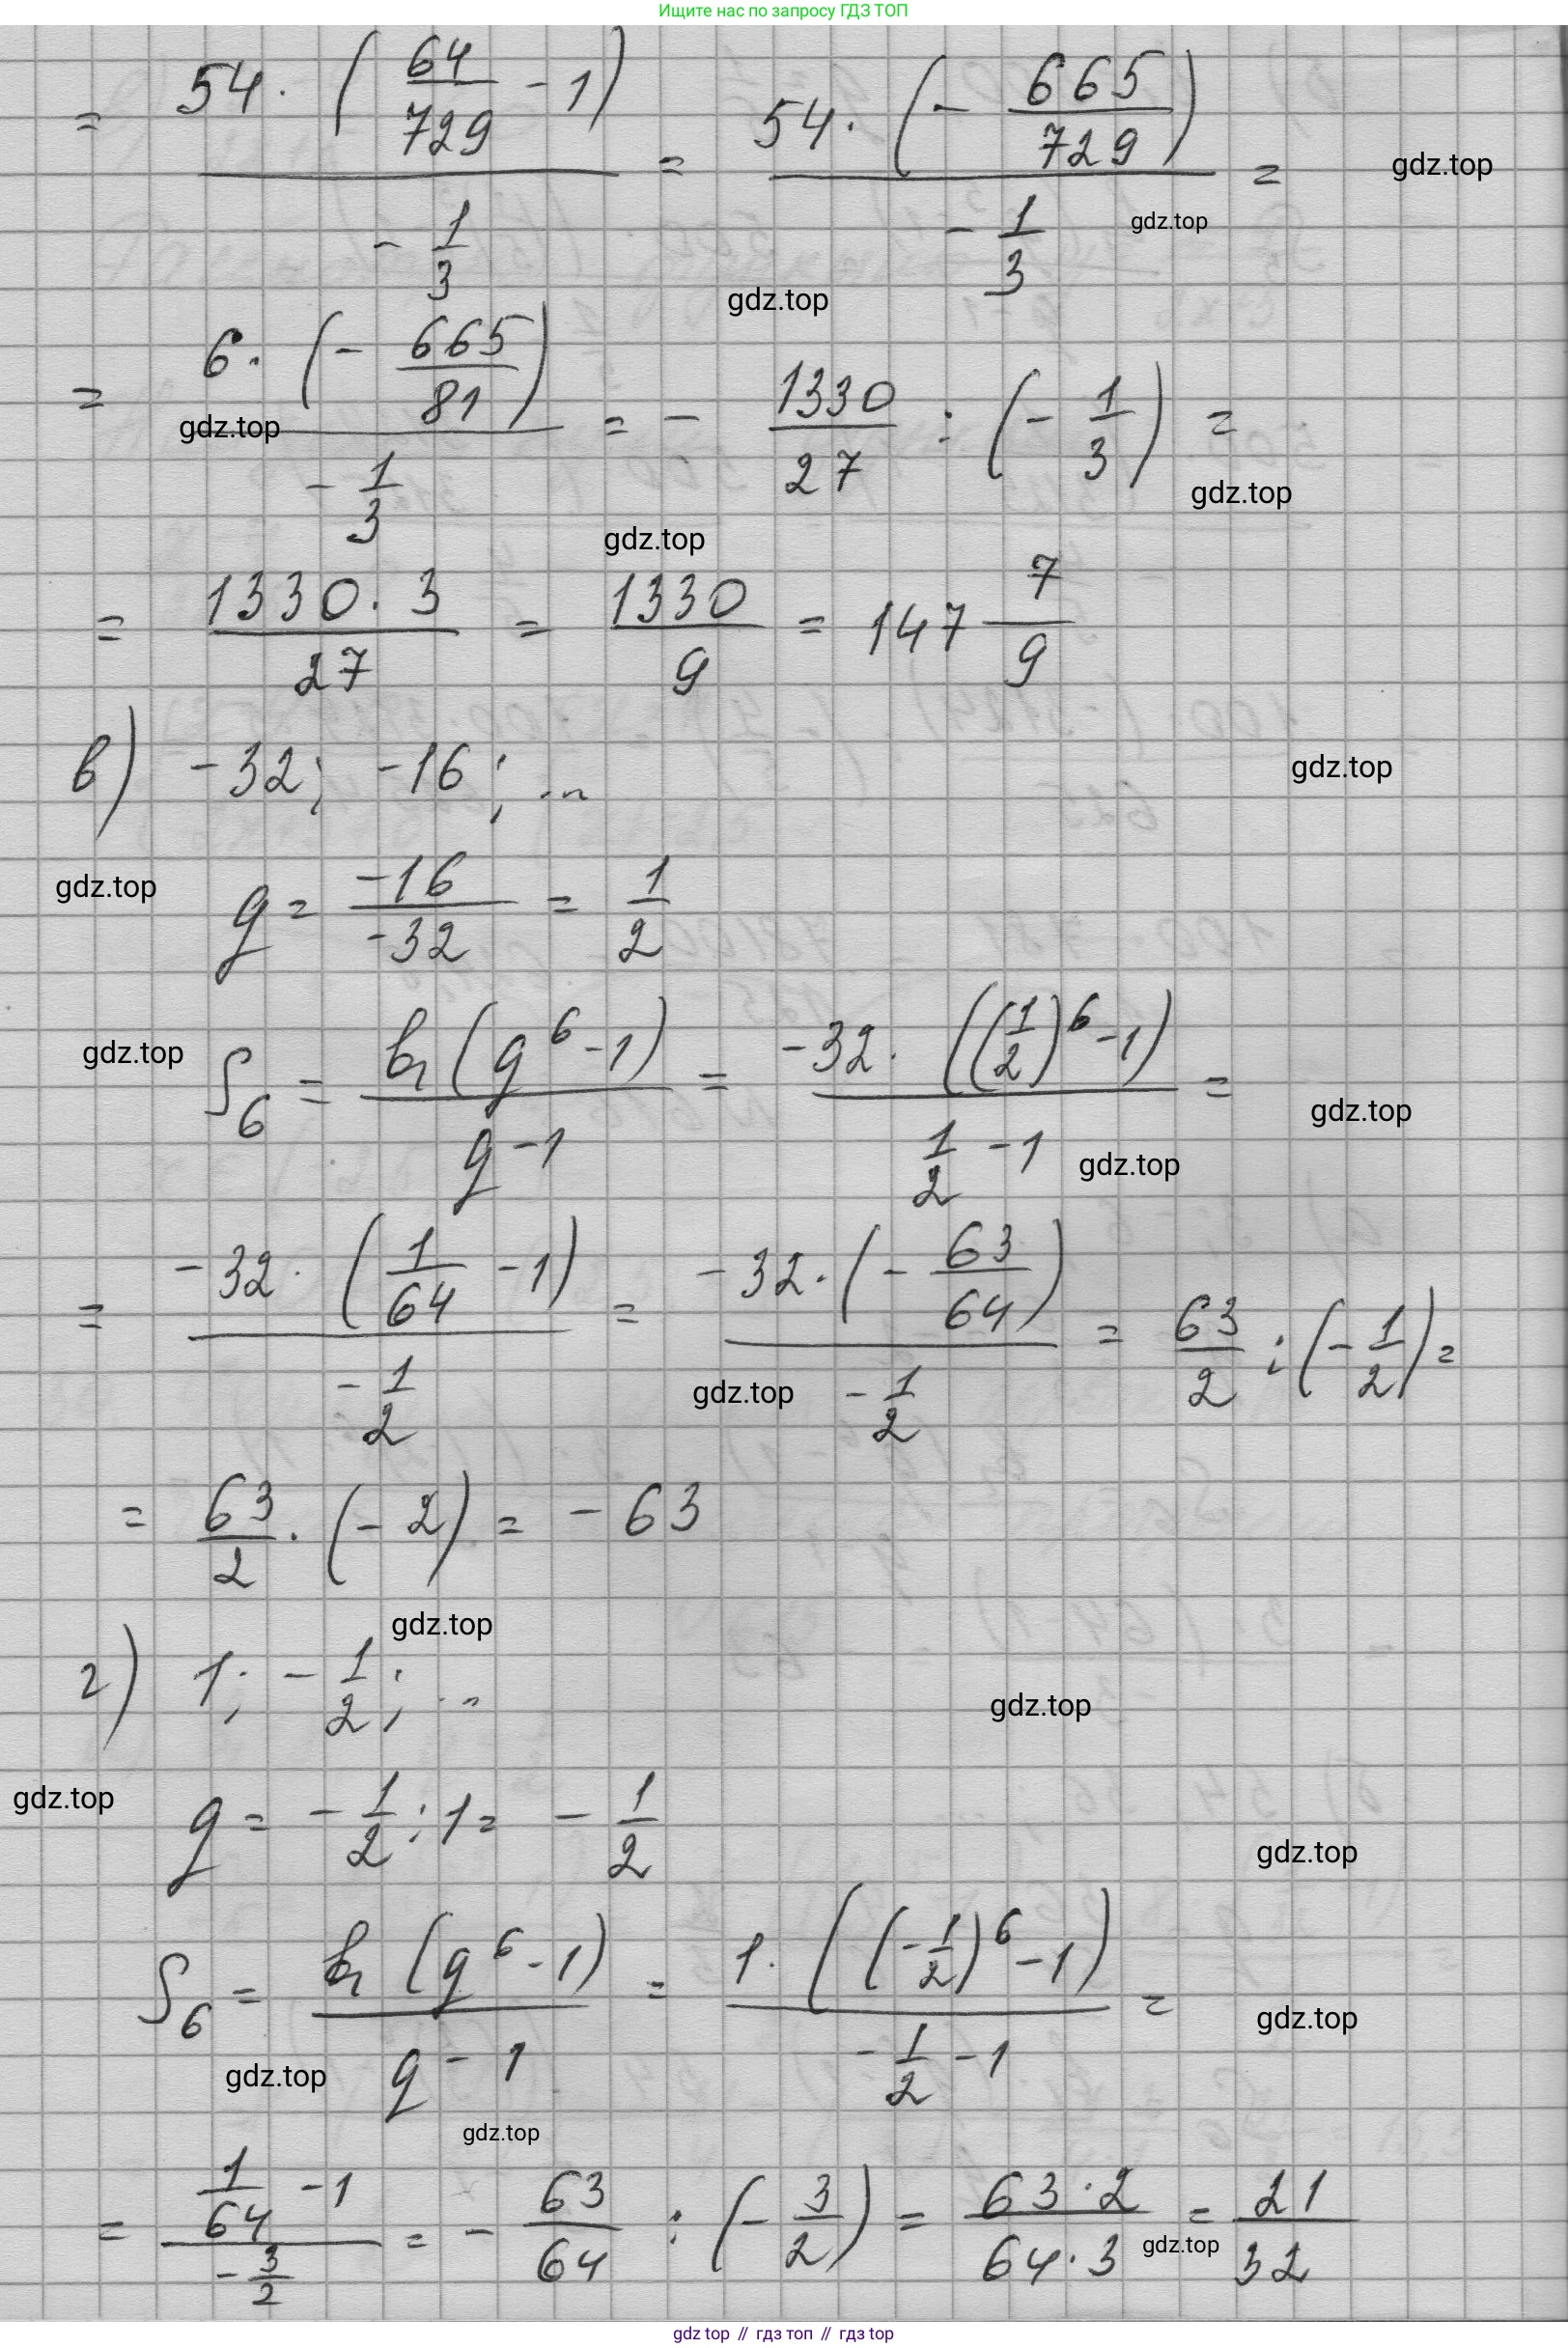 Ищите нас по запросу ГДЗ ТОП
= 54 · (64/729 - 1) / (-1/3) = 54 · (- 665/729) / (-1/3) =
gdz.top
gdz.top
gdz.top
= 6 · (- 665/81) / (-1/3) = - 1330/27 : (- 1/3) =
gdz.top
gdz.top
gdz.top
= 1330 · 3 / 27 = 1330/9 = 147 7/9
в) -32; -16; ...
gdz.top
gdz.top
q = -16/-32 = 1/2
gdz.top
S₆ = b₁(q⁶-1) / (q-1) = -32 · ((1/2)⁶-1) / (1/2 - 1) =
gdz.top
gdz.top
= -32 · (1/64 - 1) / (-1/2) = -32 · (- 63/64) / (-1/2) = 63/2 : (- 1/2) =
gdz.top
= 63/2 · (- 2) = - 63
gdz.top
г) 1; - 1/2; ...
gdz.top
gdz.top
q = - 1/2 : 1 = - 1/2
gdz.top
S₆ = b₁(q⁶-1) / (q - 1) = 1 · ((-1/2)⁶-1) / (-1/2 - 1) =
gdz.top
gdz.top
gdz.top
= (1/64 - 1) / (-3/2) = - 63/64 : (- 3/2) = 63 · 2 / 64 · 3 = 21/32
gdz.top
gdz top // гдз топ // гдз top